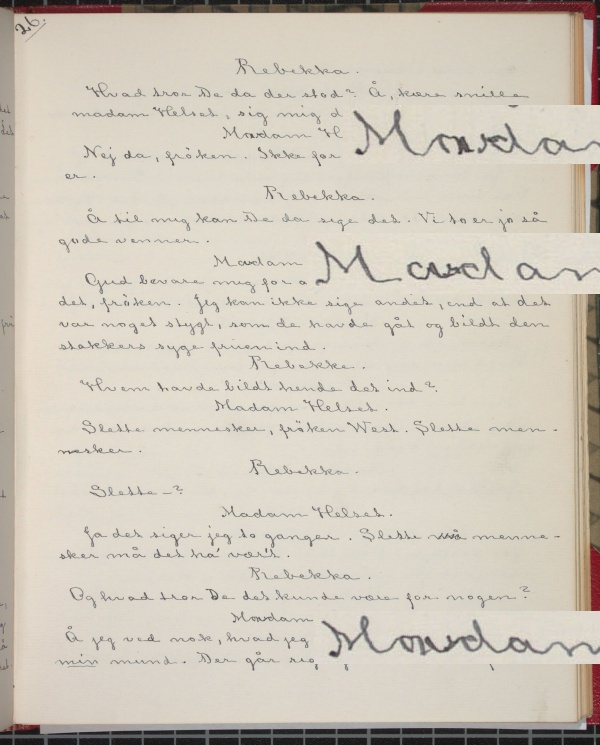 26.
Rebekka.
Hvad tror De da der stod? Å, kære snille
madam Helset, sig mig d
Madam H
Madam
Nej da, frøken. Ikke for
er.
Rebekka.
Å til mig kan De da sige det. Vi to er jo så
gode venner.
Madam
Madam
Gud bevare mig for a
det, frøken. Jeg kan ikke sige andet, end at det
var noget stygt, som de havde gåt og bildt den
stakkers syge fruen ind.
Rebekka.
Hvem havde bildt hende det ind?
Madam Helset.
Slette mennesker, frøken West. Slette men-
nesker.
Rebekka.
Slette–?
Madam Helset.
Ja det siger jeg to ganger. Slette menne-
sker må det ha' vær't.
Rebekka.
Og hvad tror De det kunde være for nogen?
Madam
Madam
Å jeg ved nok, hvad jeg
min mund. Der går